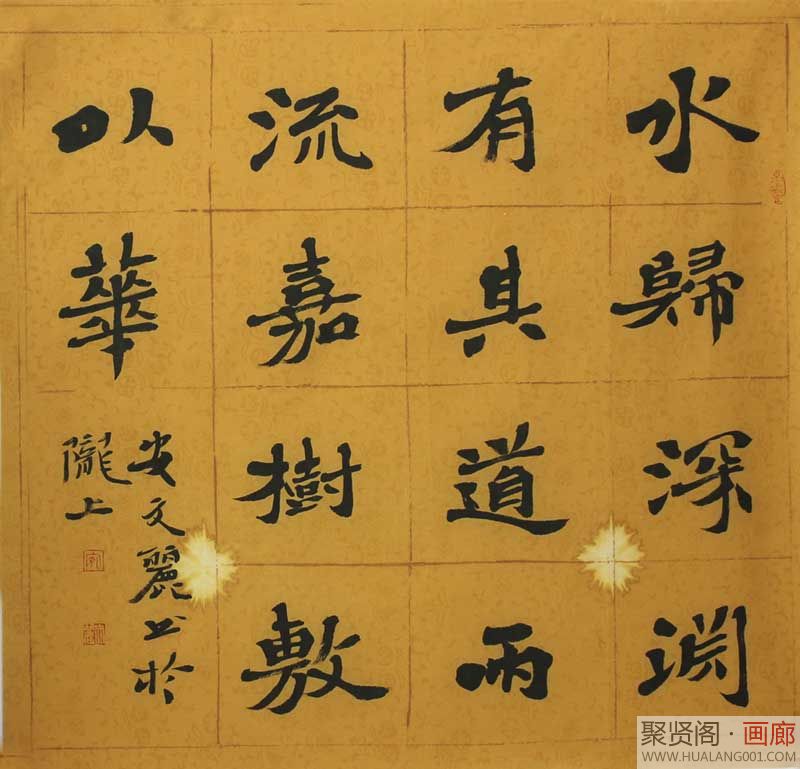 水歸深淵
有其道雨
流嘉樹敷
以華
安文麗书於
隴上
聚贤阁·画廊
WWW.HUALANG001.COM